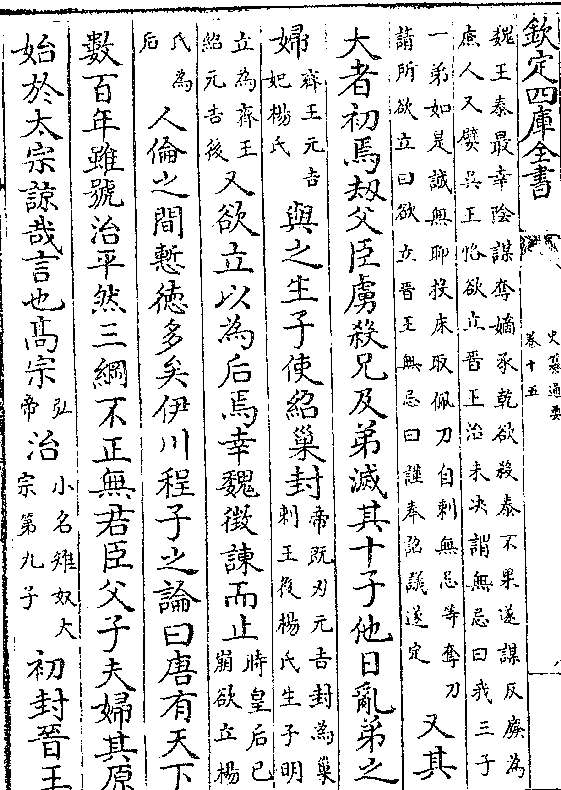 欽定四庫全書
史纂通要
卷十五
魏王泰最幸陰謀奪嫡承乾欲殺泰不果遂謀反廢為
庶人又嬖吳王恪欲立晉王治未决謂無忌曰我三子
一弟如是誠無聊投床取佩刀自刺無忌等奪刀
請所欲立曰欲立晉王無忌曰謹奉詔議遂定
又其
大者初焉刼父臣虜殺兄及弟滅其十子他日亂弟之
婦
齊王元吉
妃楊氏
與之生子使紹巢封
帝既刃元吉封為巢
刺王後楊氏生子明
立為齊王
紹元吉後
又欲立以為后焉幸魏徴諫而止
時皇后已
崩欲立楊
氏為
后
人倫之間慙徳多矣伊川程子之論曰唐有天下
數百年雖號治平然三綱不正無君臣父子夫婦其原
始於太宗諒哉言也髙宗
弘
帝
治
小名雉奴大
宗第九子
初封晉王